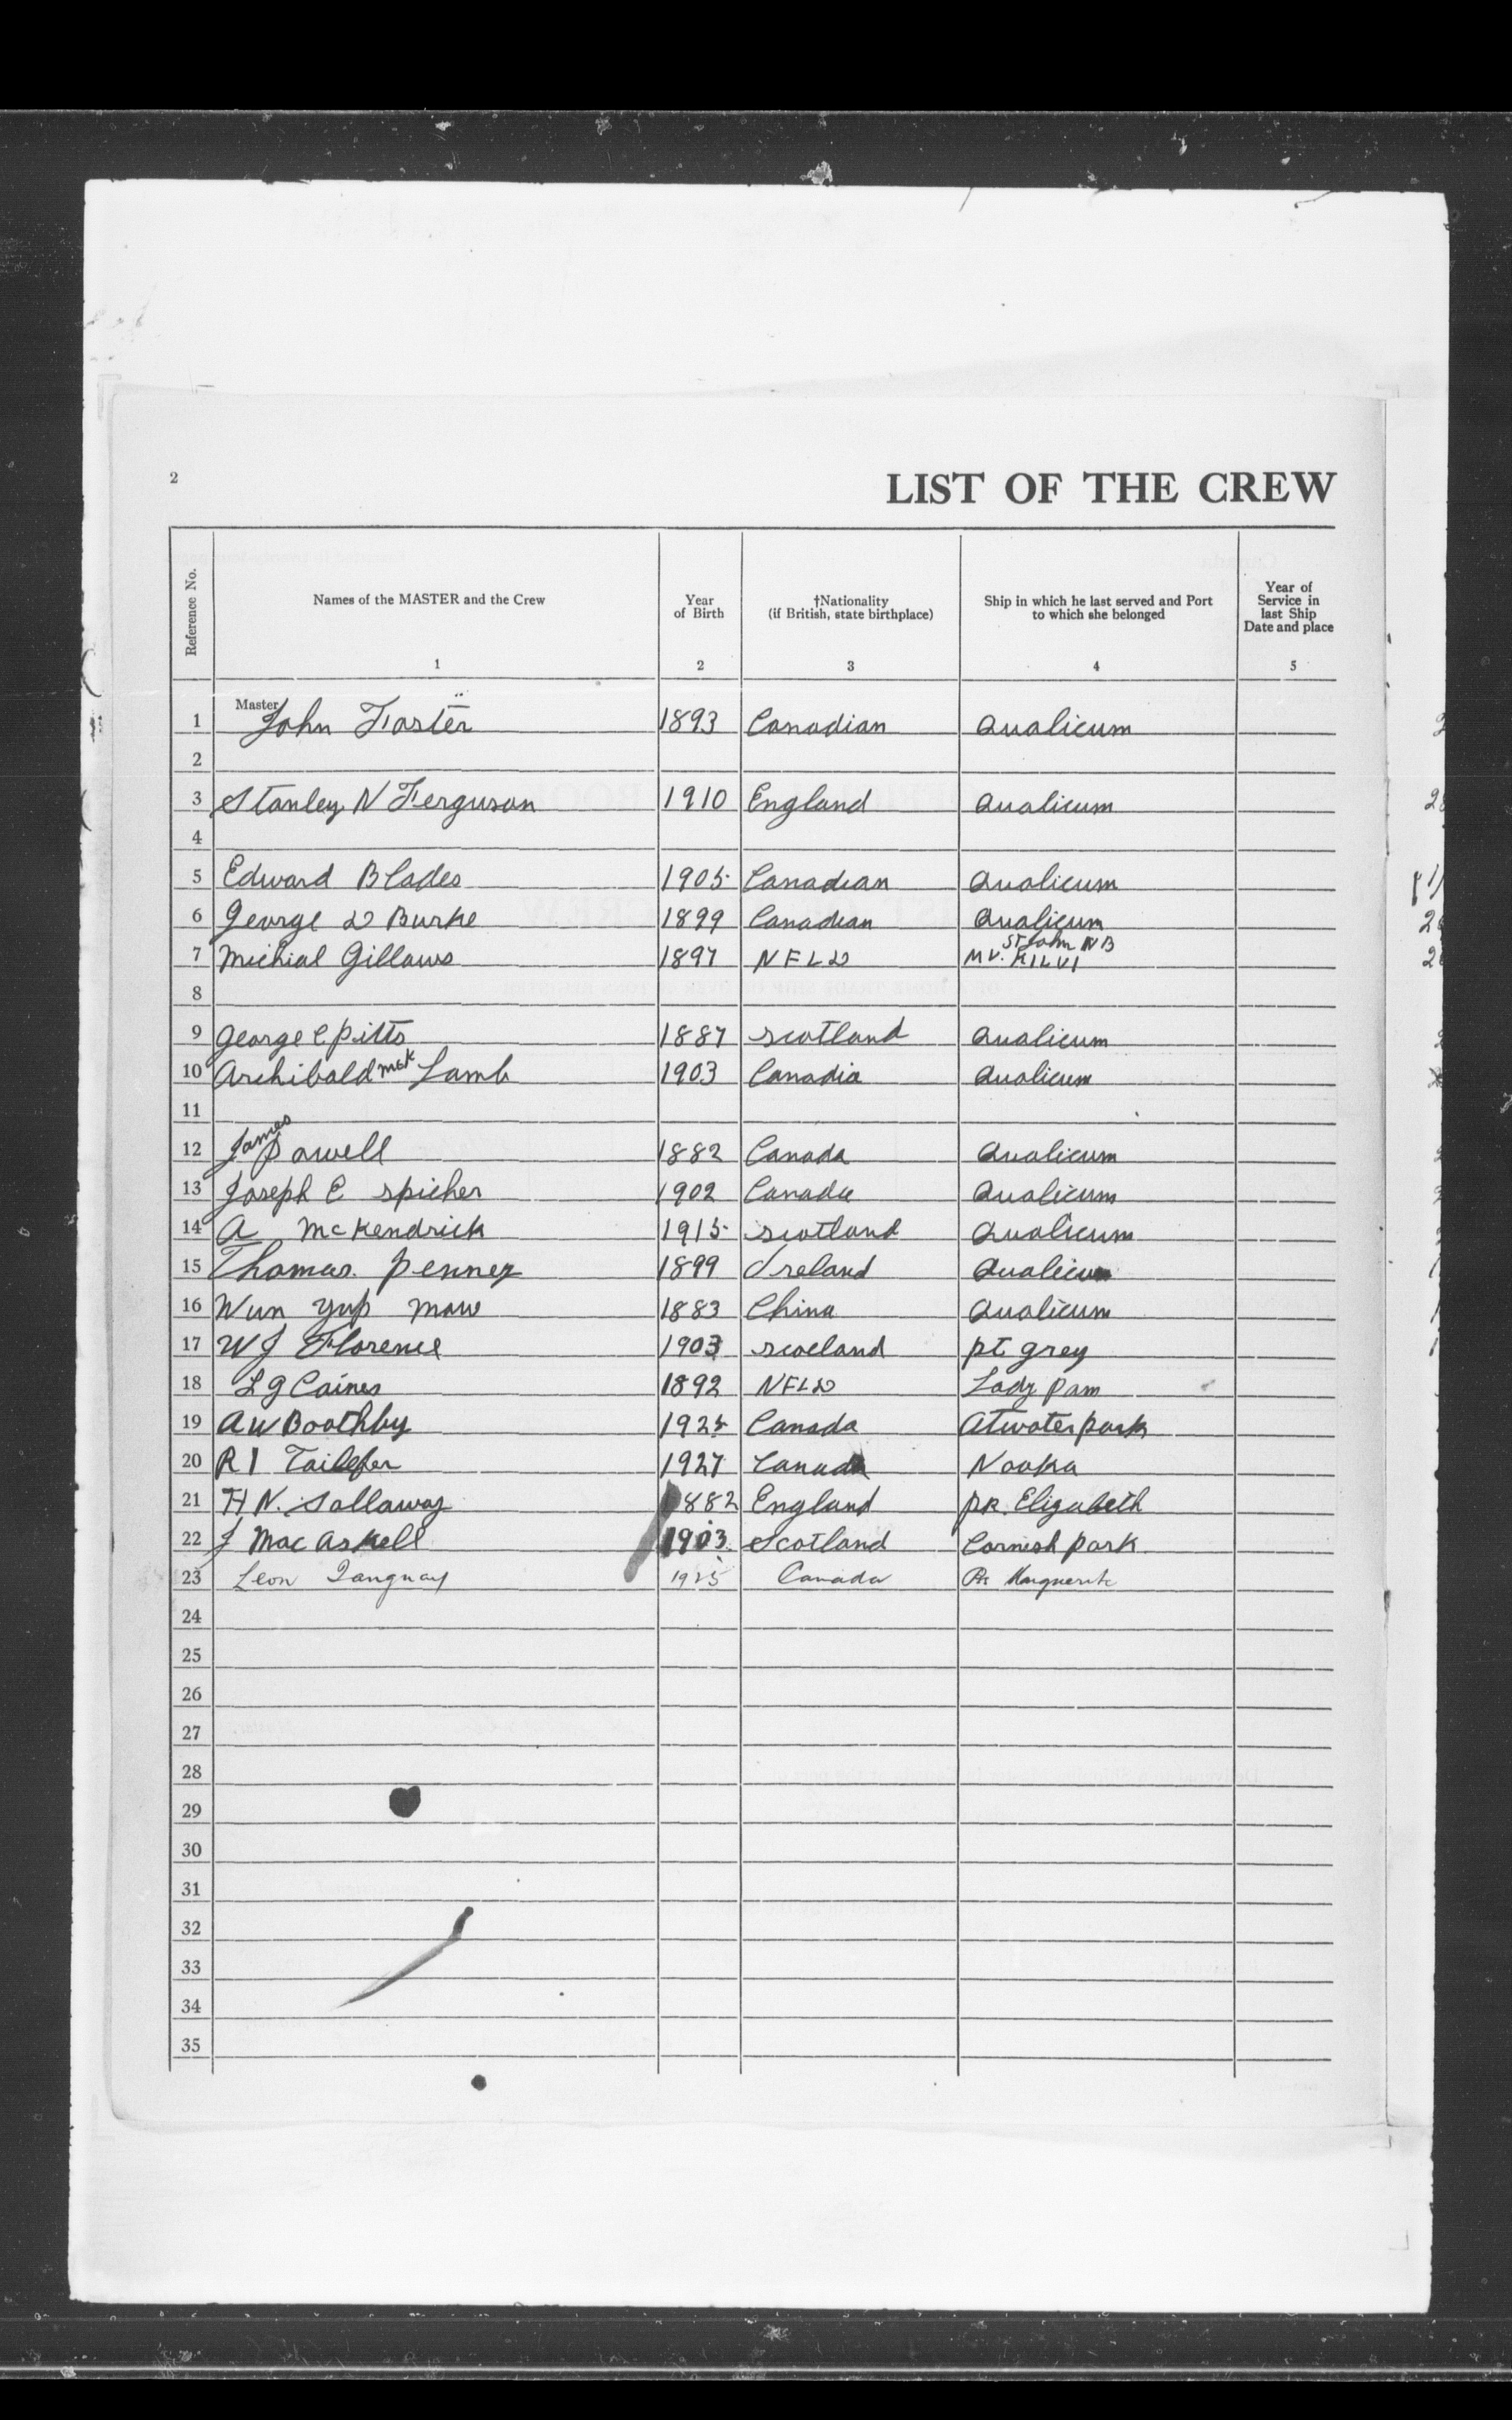 2
LIST OF THE CREW
Reference No.
Names of the MASTER and the Crew
1
Year
of Birth
2
†Nationality
(if British, state birthplace)
3
Ship in which he last served and Port
to which she belonged
4
Year of
Service in
last Ship
Date and place
5
1 Master John Foster 1893 Canadian Qualicum
2
3 Stanley N Ferguson 1910 England Qualicum
4
5 Edward Blades 1905 Canadian Qualicum
6 George D Burke 1899 Canadian Qualicum
7 Michial Gillaws 1897 NFLD M V. KILVI St John NB
8
9 George C Pitts 1887 Scotland Qualicum
10 Archibald McK Lamb 1903 Canadia Qualicum
11
12 James Powell 1882 Canada Qualicum
13 Joseph E Spicher 1902 Canada Qualicum
14 A McKendrick 1915 Scotland Qualicum
15 Thomas. Penney 1899 Ireland Qualicum
16 Wun Yup Mow 1883 China Qualicum
17 W J Florence 1903 Scotland pt grey
18 L G Caines 1892 NFLD Lady Pam
19 A W Boothby 1925 Canada Atwater park
20 R I Tailefer 1927 Canada Nootka
21 H N. Sollaway 1882 England PR. Elizabeth
22 J MacAskell 1903 Scotland Cornish Park
23 Leon Tanguay 1925 Canada Prs Marguerite
24
25
26
27
28
29
30
31
32
33
34
35